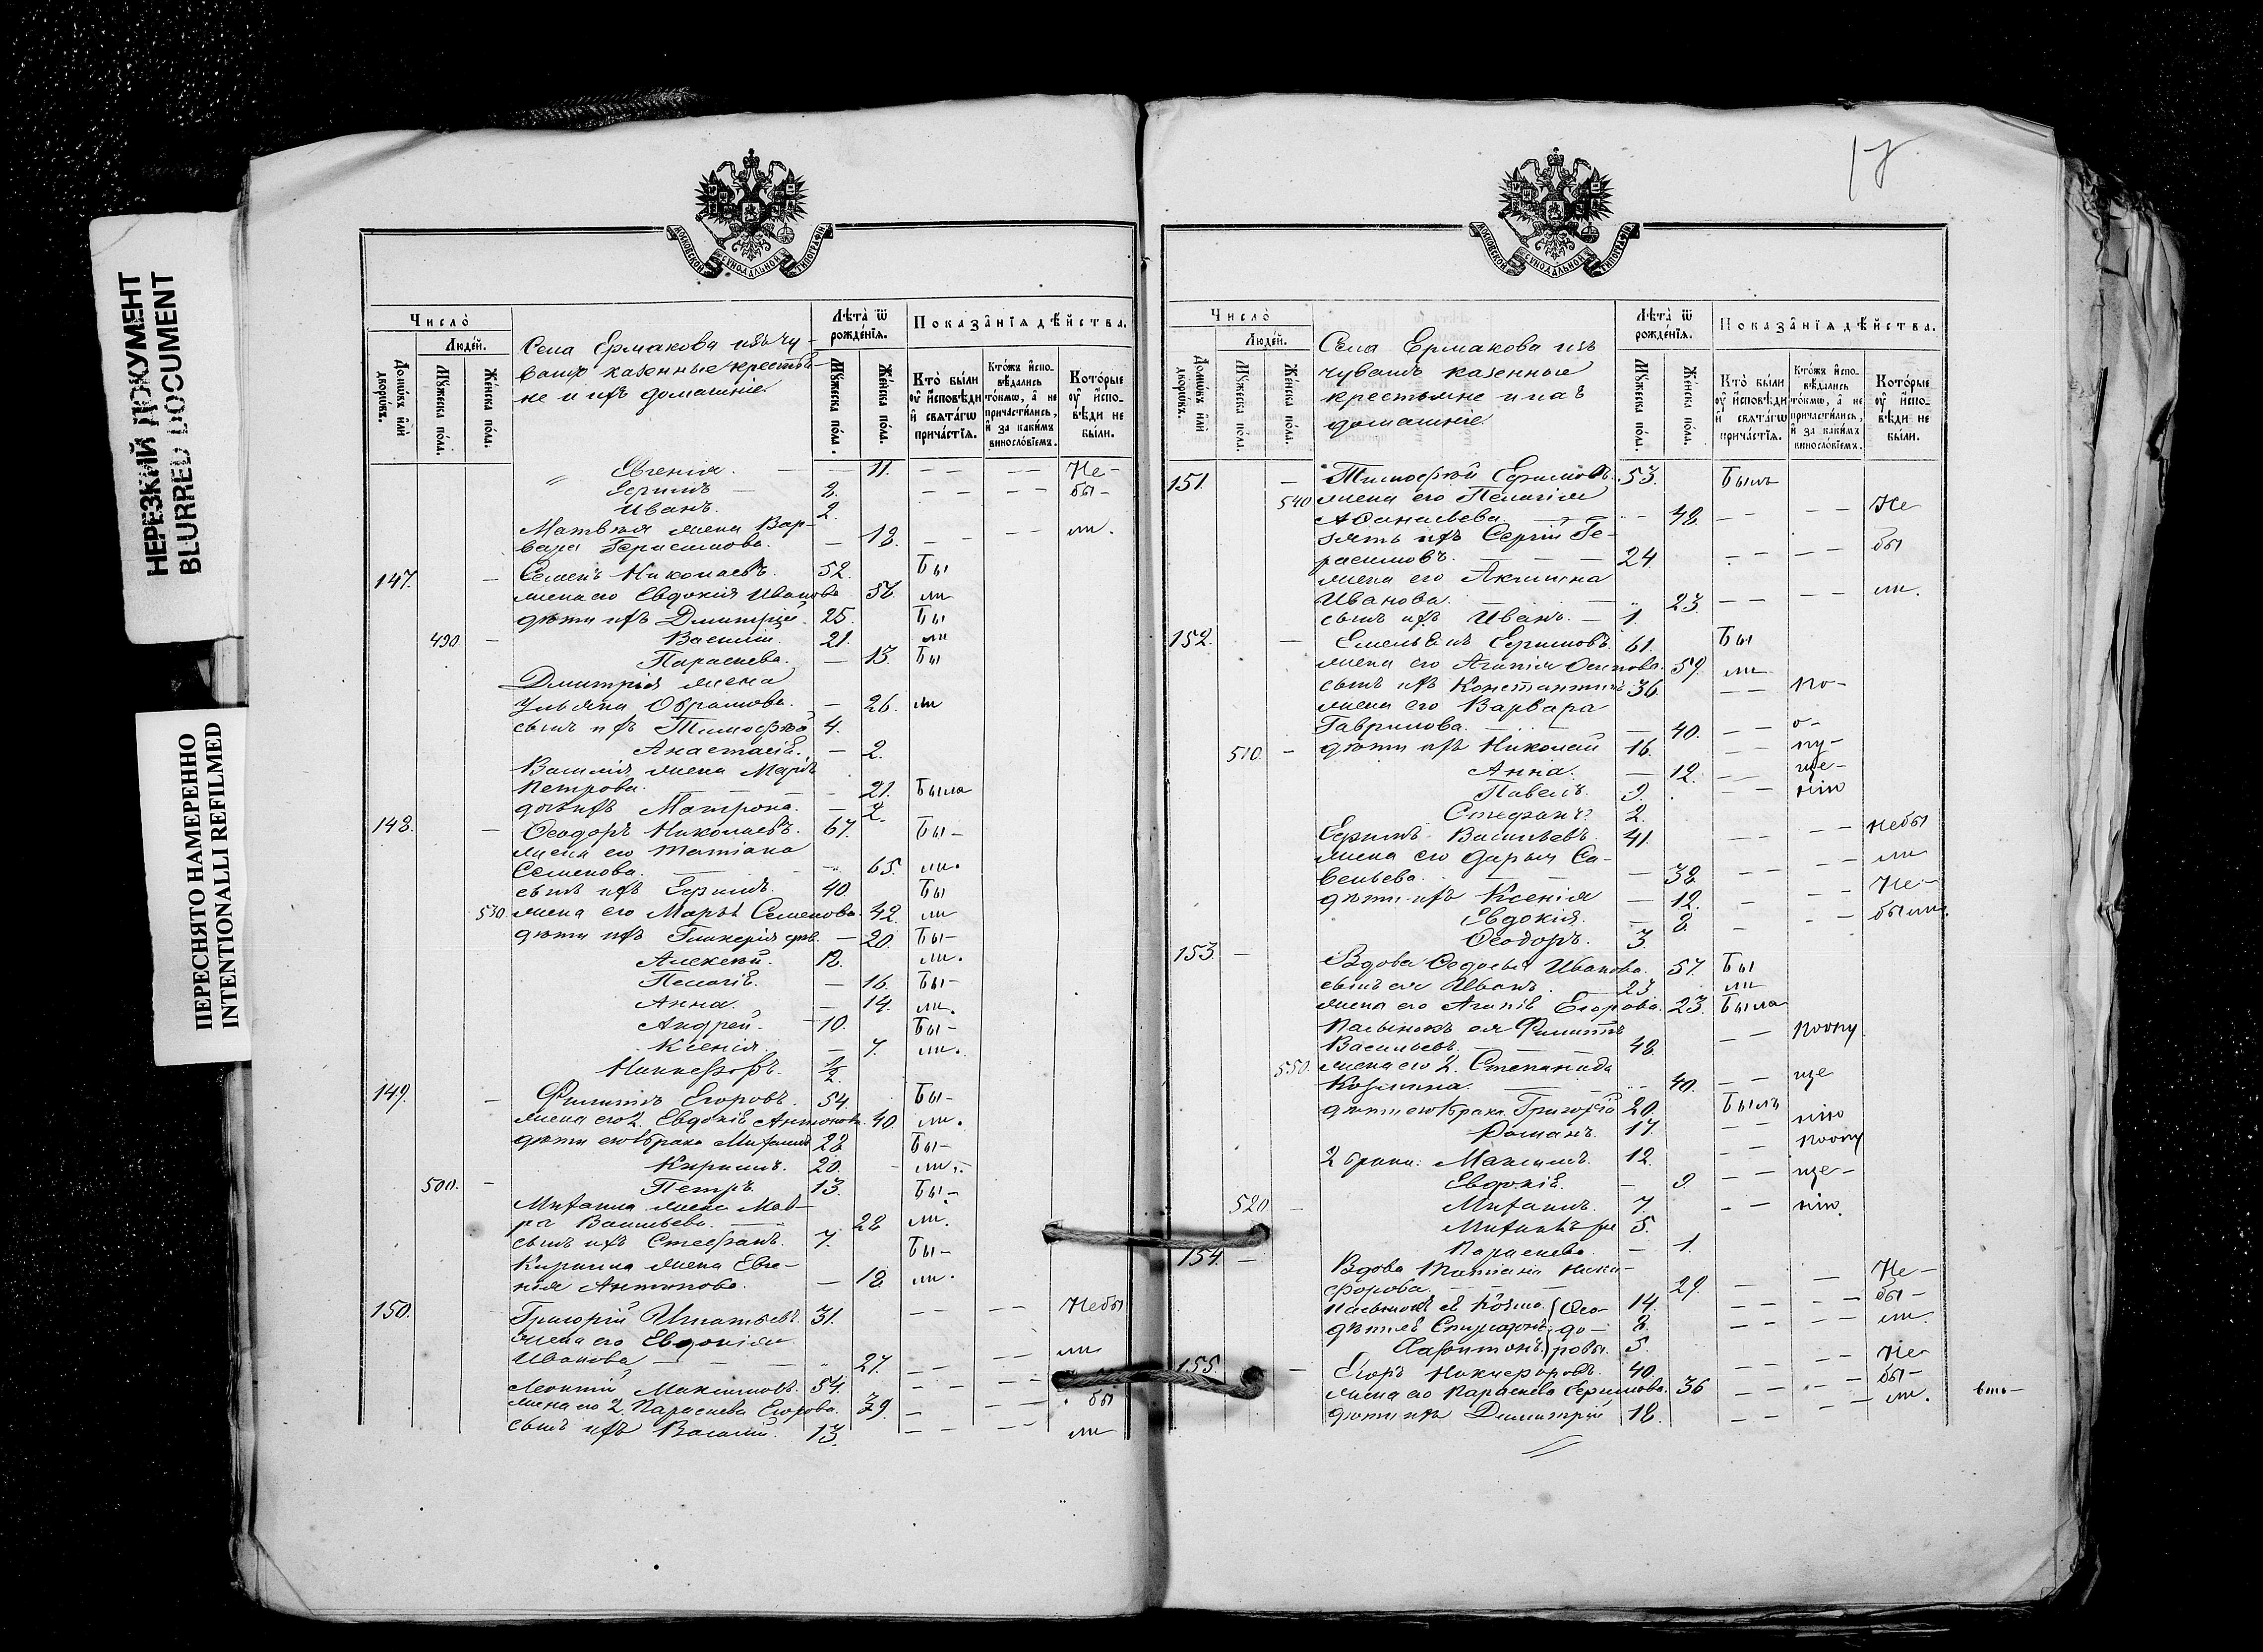 НЕРЕЗКИЙ ДОКУМЕНТ
BLURRED DOCUMENT
ПЕРЕСНЯТО НАМЕРЕННО
INTENTIONALLI REFILMED
МОСКОВСКОЙ СѴНОДАЛЬНОЙ ТИПОГРАФІИ
Число̀
Людéй.
Домѡ́въ и҆лѝ дворѡ́въ.
Мꙋ́жеска по́ла.
Же́нска по́ла.
Села Ермакова изъ чу-
вашъ казенные крестья-
не и ихъ домашніе
Лѣта̀ ѿ рожде́нїѧ.
Мꙋ́жеска по́ла.
Же́нска по́ла.
Показа̑нїѧ дѣ́йства.
Кто̀ бы́ли ᲂу҆ и҆́сповѣди и҆ свѧта́гѡ прича́стїѧ.
Кто́жъ и҆спо-вѣ́дались то́кмѡ, а҆ не причасти́лись, и҆ за каки́мъ винослóвїемъ.
Кото́рые ᲂу҆ и҆́спо-вѣди не бы́ли.
Евгенія. — 11. — — — — Не-
Ефимъ — 2. — — — — бы-
Иванъ. 2.
Матвѣя жена Вар-
вара Герасимова. — 18. — — — ли.
147. — Семенъ Николаевъ. 52. Бы
жена его Евдокія Иванова 57. ли
дѣти ихъ Димитрій. 25. Бы
490 — Василій. 21. ли
Параскева. — 13. Бы
Димитрія жена
Ульяна Абрамова. — 26. ли
сынъ ихъ Тимофей 4.
Анастасія. — 2.
Василія жена Марія
Петрова. — 21. Была
дочь ихъ Матрона. — 2.
148. — Ѳеодоръ Николаевъ. 67. Бы-
жена его Татіана
Семенова. — 65. ли.
сынъ ихъ Ефимъ. 40 Бы
530 жена его Марья Семенова. 42. ли
дѣти ихъ Гликерія дѣв. — 20. Бы-
Алексѣй. 18. ли.
Пелагія. — 16. Бы-
Анна. — 14. ли.
Андрей. 10. Бы-
Ксенія. — 7. ли.
Никифоръ. 1/2.
149. — Филиппъ Егоровъ. 54. Бы-
жена его 2. Евдокія Антонова. 40. ли.
дѣти его 1 брака Михаилъ 28 Бы-
Кирилъ. 20. — ли.-
500. — Петръ. 13. Бы-
Михаила жена Мав-
ра Васильева. — 28 ли.
сынъ ихъ Стефанъ. 7. Бы-
Кирилла жена Евге-
нія Антонова. — 18 ли.
150. Григорій Игнатьевъ. 31. — — — — Небы
жена его Евдокія
Иванова — — — 27. — — — ли
Леонтій Максимовъ. 54. — — — —
жена его 2. Параскева Егорова. 39. — — — бы
сынъ ихъ Василій. 13. — — — — ли
МОСКОВСКОЙ СѴНОДАЛЬНОЙ ТИПОГРАФІИ
Число̀
Людéй.
Домѡ́въ и҆лѝ дворѡ́въ.
Мꙋ́жеска по́ла.
Же́нска по́ла.
Села Ермакова изъ
чувашъ казенные
крестьяне и ихъ
домашніе
Лѣта̀ ѿ рожде́нїѧ.
Мꙋ́жеска по́ла.
Же́нска по́ла.
Показа̑нїѧ дѣ́йства.
Кто̀ бы́ли ᲂу҆ и҆́сповѣди и҆ свѧта́гѡ прича́стїѧ.
Кто́жъ и҆спо-вѣ́дались то́кмѡ, а҆ не причасти́лись, и҆ за каки́мъ винослóвїемъ.
Кото́рые ᲂу҆ и҆́спо-вѣди не бы́ли.
151. — Тимофей Ефимовъ. 53. Былъ
540 жена его Пелагія
Аѳанасьева. — — 48. — — — Не
зять ихъ Сергій Ге-
расимовъ. — — — 24. — — — бы
жена его Акилина
Иванова. — — 23. — — — — ли.
сынъ ихъ Иванъ. — 1.
152. — Емельянъ Ефимовъ. 61. Бы
жена его Агапія Осипова. 59. ли
сынъ ихъ Константинъ 36. — — по-
жена его Варвара
Гаврилова. — — 40. — — о-
510. — дѣти ихъ Николай 16. — — пу-
Анна. — 12. — — ще-
Павелъ. 9. — — нію
Стефанъ. 2.
Ефимъ Васильевъ. 41. — — — — небы
жена его Дарья Са-
вельева. — — 38. — — — — ли
дѣти ихъ Ксенія — 12. — — — Не-
Евдокія. — 8. — — — были.
Ѳеодоръ. 3.
153. — Вдова Ѳедосья Иванова. 57. Бы
сынъ ея Иванъ. — 23 ли
жена его Агапія Егорова. 23. Была
Пасынокъ ея Филиппъ
Васильевъ. — — — 48. — — поопу
550. жена его 2. Степанида
Козмина. — — — 40. — — ще
дѣти его 1 брака. Григорій 20. Былъ нію
Романъ. 17. — — поопу
2 брака: Максимъ. 12. — — ще-
Евдокія. — 9. — — нію.
520 — Михаилъ. 7.
Михаилъ же 5.
Параскева. — 1.
154. — Вдова Татіана Ники-
форова. — — 29. — — Не-
пасынокъ ея Козма. Ѳео- 14. — — — — бы-
дѣти ея Спиридонъ. до- 8. — — — — ли.
Харитонъ. ровы. 5.
155. — Егоръ Никифоровъ. 40. — — — — Не
жена его Параскева Ефимова. 36 — — — — бы-
дѣти ихъ Димитрій 18. — — — — ли.
вто-